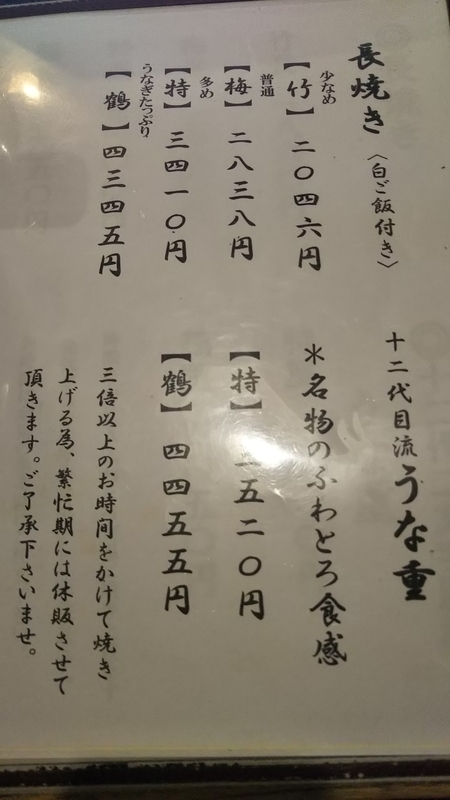 長焼き〈白ご飯付き〉
少なめ
【竹】二〇四六円
普通
【梅】二八三八円
多め
【特】三四一〇円
うなぎたっぷり
【鶴】四三四五円
十二代目流うな重
＊名物のふわとろ食感
【特】五二〇円
【鶴】四四五五円
三倍以上のお時間をかけて焼き
上げる為、繁忙期には休販させて
頂きます。ご了承下さいませ。